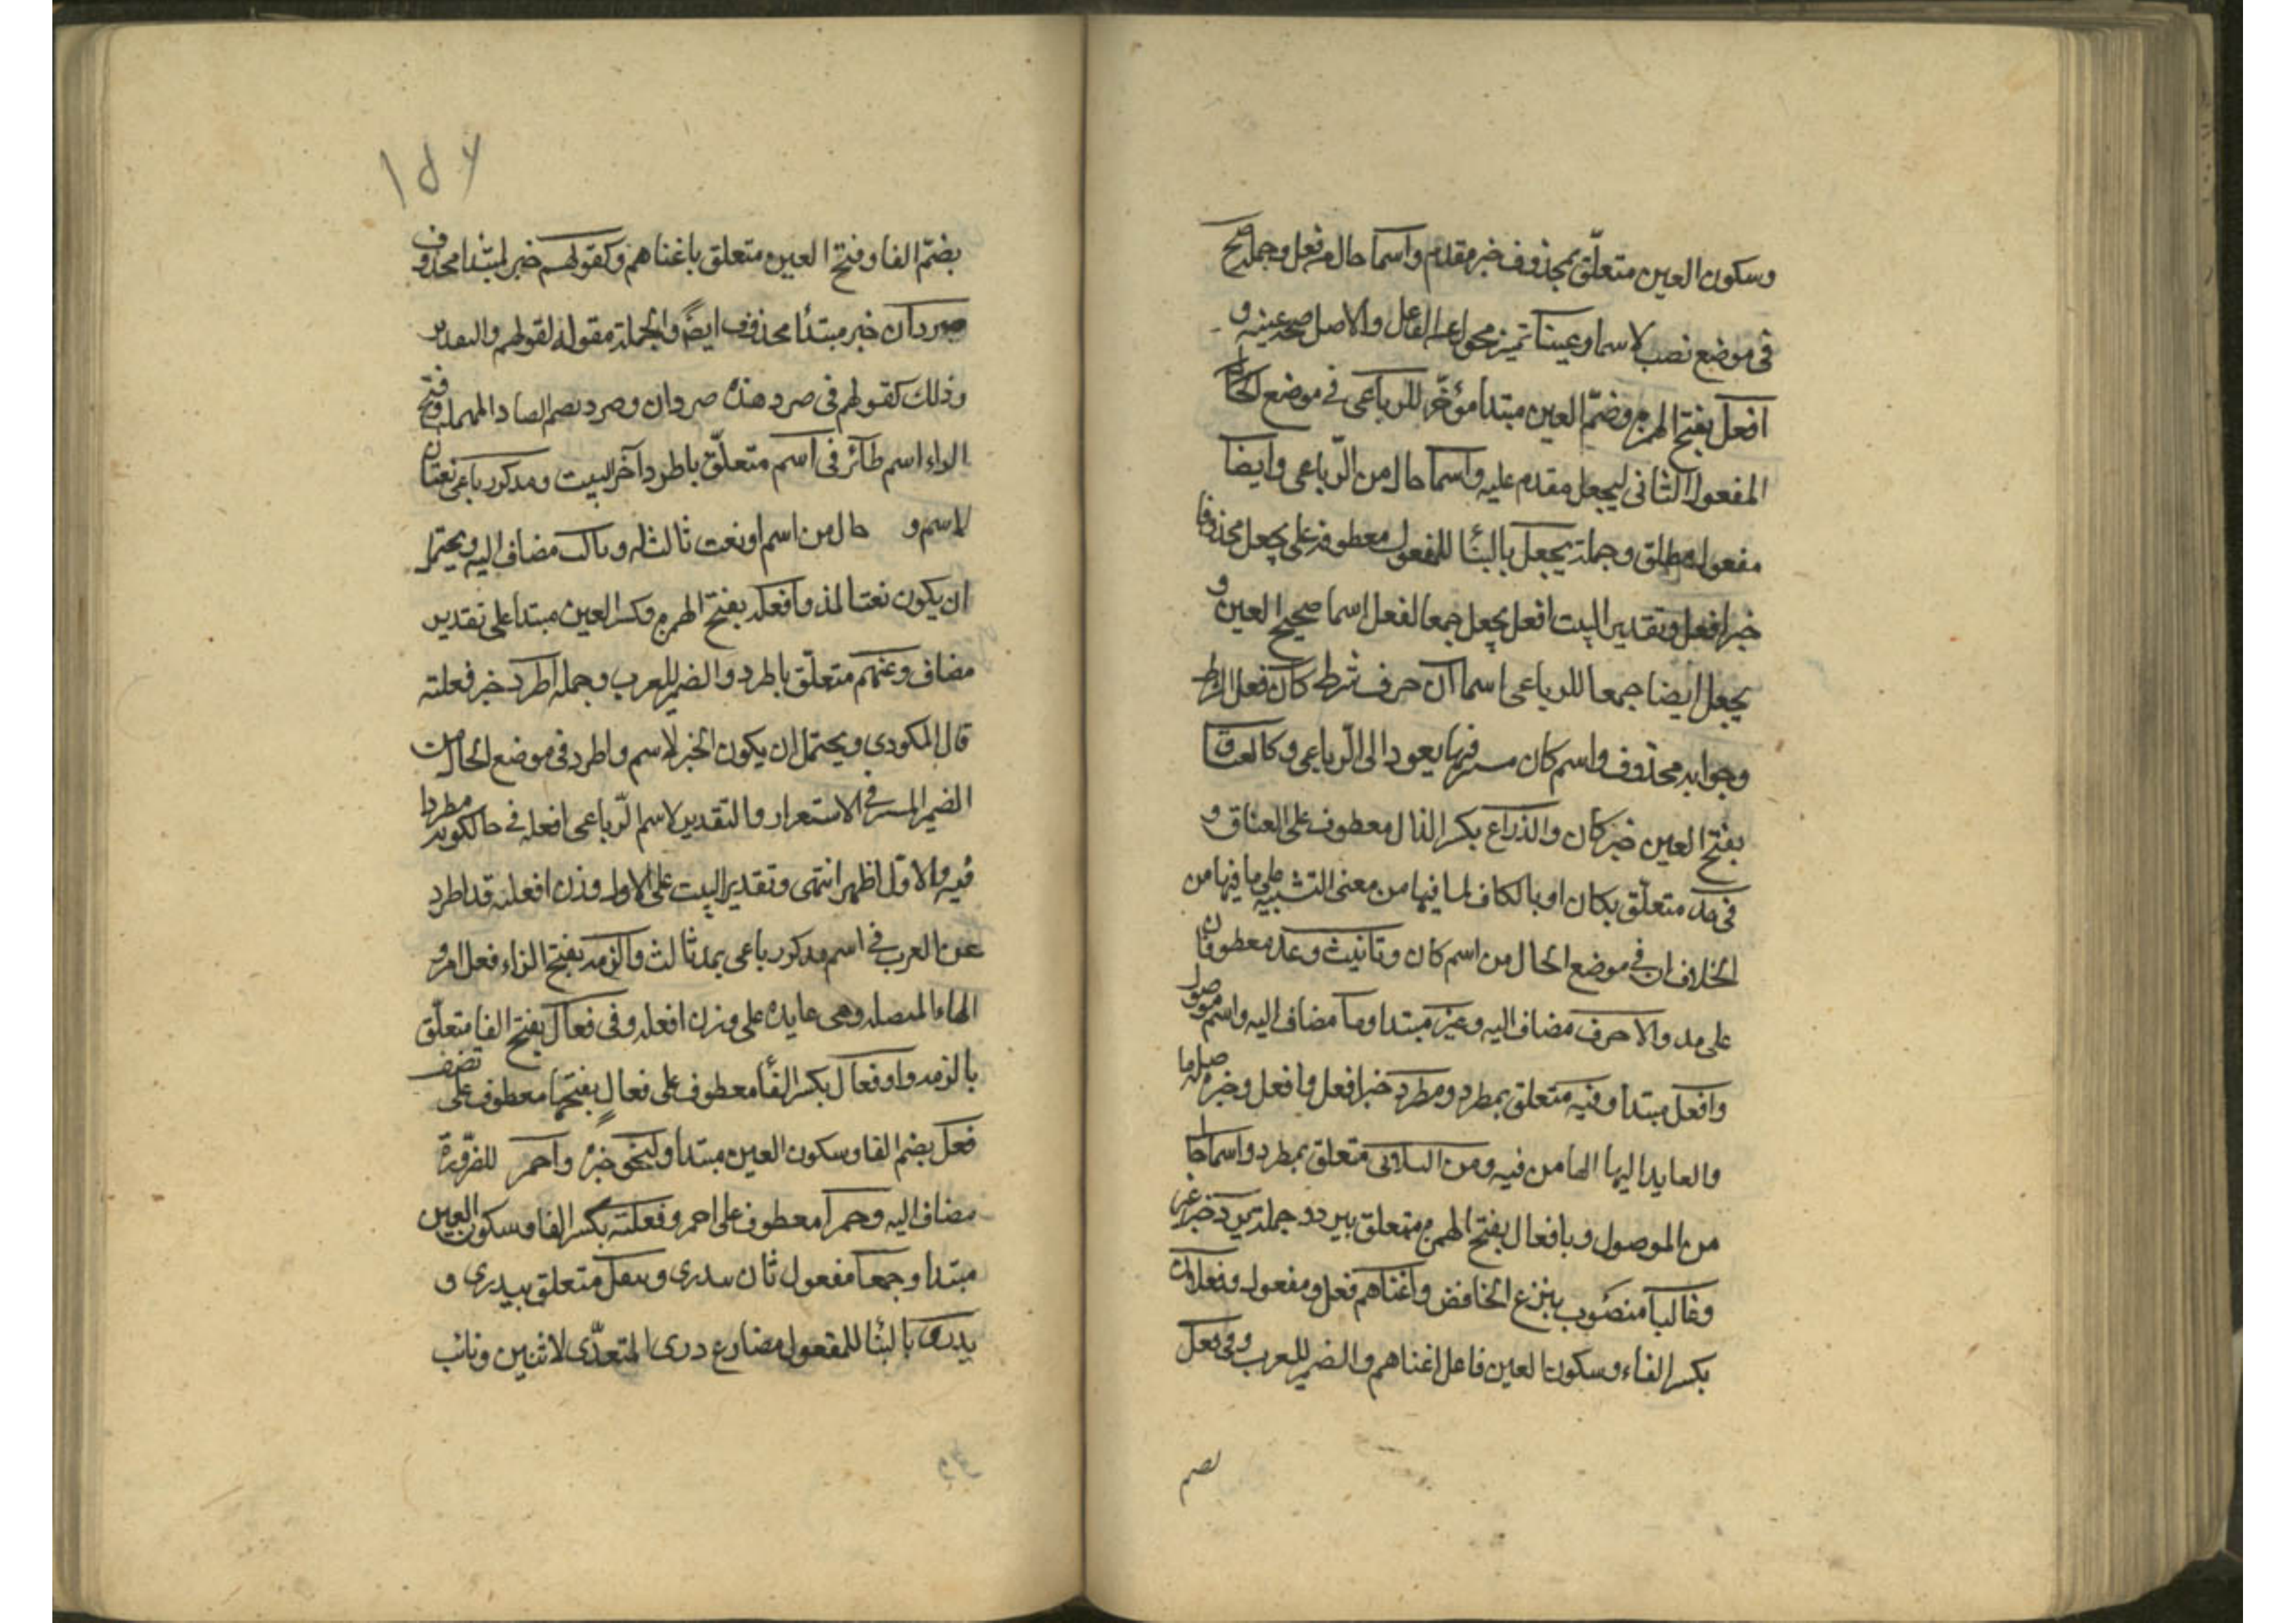 وسكون العين متعلّق بمحذوف خبر مقدم واسما حال من فعل وجملة صح
فى موضع نصب لاسما وعينا تميز محول عن الفاعل والاصل صح عينه و
افعل بفتح الهمزة وضمّ العين مبتدا مؤخّر للرباعى في موضع الحال
المفعول الثانى ليجعل مقدم عليه واسما حال من الرّباعى وايضا
مفعول مطلق وجملة يجعل بالبنا للمفعول معطوفة على يجعل محذوفا
خبر افعل وتقدير البيت افعل يجعل جمعا لفعل اسما صحيح العين و
يجعل ايضا جمعا للرباعى اسما ان حرف شرط كان فعل الشرط
وجوابه محذوف واسم كان مستتر فيها يعود الى الرّباعى وكالعناق
بفتح العين خبر كان والذراع بكسر الذال معطوف على العناق و
فى مد متعلّق بكان او بالكاف لما فيها من معنى التشبيه على ما فيها من
الخلاف ان في موضع الحال من اسم كان وتانيث وعد معطوفان
على مد والاحرف مضاف اليه وغير مبتدا وما مضاف اليه واسم موصول
وافعل مبتدا وفيه متعلق بمطرد ومطرد خبر افعل وافعل وخبره صلة ما
والعايد اليها الها من فيه ومن الثلاثى متعلق بمطرد واسما حال
من الموصول وبافعال بفتح الهمزة متعلق بيرد وجملة يرد خبر غير
وغالبا منصوب بنزع الخافض واغناهم فعل ومفعول وفعلان
بكسر الفاء وسكون العين فاعل اغناهم والضمير للعرب وفى فعل
بضم
١٥٧
بضمّ الفا وفتح العين متعلق باغناهم وكقولهم خبر لمبتدا محذوف
صردان خبر مبتدا محذوف ايضا والجملة مقولة لقولهم والتقدير
وذلك كقولهم فى صرد هذه صردان وصرد بضم الصاد المهملة وفتح
الراء اسم طائر فى اسم متعلّق باطرد آخر البيت ومذكر رباعى نعتان
لاسم و حال من اسم او نعت ثالث له وثالث مضاف اليه ويحتمل
ان يكون نعتا لمد وافعلة بفتح الهمزة وكسر العين مبتدا على تقدير
مضاف وعنهم متعلّق باطرد والضمير للعرب وجملة اطرد خبر فعلته
قال المكودى ويحتمل ان يكون الخبر لاسم واطرد فى موضع الحال من
الضمير المستتر في الاستقرار والتقدير لاسم الرّباعى افعلة في حال كونه مطردا
فيه والاول اظهر انتهى وتقدير البيت على الاول وزن افعلة قد اطرد
عن العرب في اسم مذكر رباعى بمد ثالث والزمه بفتح الزاء فعل امر و
الهاء المتصلة وهى عايده على وزن افعلة وفى فعال بفتح الفا متعلّق
بالزمه واو فعال بكسر الفا معطوف على فعال بفتحها معطوف على تضعيف
فعل بضم الفا وسكون العين مبتدا ولنحو خبره واحمر للضرورة
مضاف اليه وحمرا معطوف على احمر وفعلة بكسر الفا وسكون العين
مبتدا وجمعا مفعول ثان بيدرى وبنقل متعلق بيدرى و
يدرى بالبنا للمفعول مضارع درى المتعدّى لاثنين ونائب